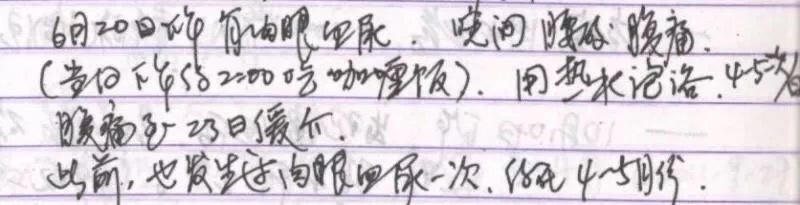 6月20日下午 有肉眼血尿. 晚间 腰酸 腹痛.
(当日下午约2:00吃咖喱饭). 用热水泡浴. 4~5次/日
腹痛至23日缓介.
此前, 也发生过肉眼血尿一次. 约在4~5月份.